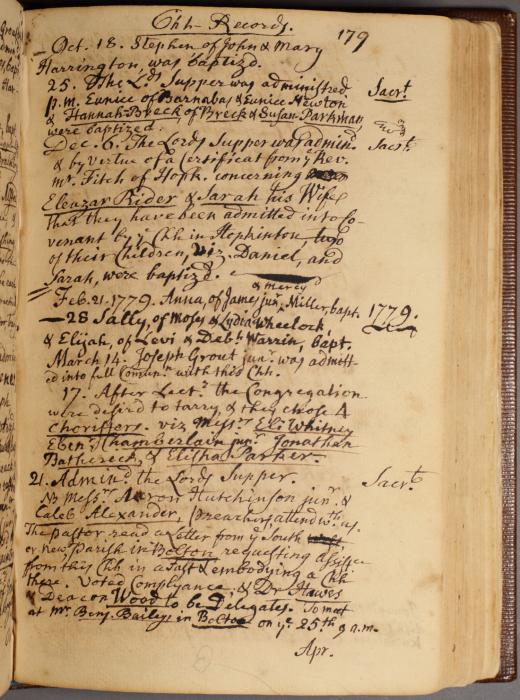 Chh Records.
179
Oct. 18. Stephen of John & Mary
Harrington, was baptizd.
25. The Lds Supper was administred
Sacrt
p.m. Eunice of Barnabas & Eunice Newton
& Hannah Breck of Breck & Susan. Parkman,
were baptized.
Dec. 6. The Lords Supper was admind.
Sacrt
& by virtue of a Certificat from ye Rev.
mr. Fitch of Hopk. concerning
Eleazar Rider & Sarah his Wife
that they have been admitted into Co-
venant by ye Chh in Hopkinton, two
of their Children, viz. Daniel, and
Sarah, were baptizd.
& mercy
Feb. 21. 1779. Anna, of James junr. Miller, bapt.
1779.
28 Sally, of Moses & Lydia Wheelock,
& Elijah, of Levi & Deb. Warrin, bapt.
March 14. Joseph Grout junr. was admitt-
ed into full Comun. with this Chh.
17. After Lect. the Congregation
were desird to tarry, & they chose 4
Choristers. viz Messrs Eli Whitney
Ebenr Chamberlain junr. Jonathan
Bathereck, & Elisha Parker.
21. Admind. the Lords Supper.
Sacrt
N.B. Messrs Aaron Hutchinson junr. &
Caleb Alexander, (preachers) attend wth us.
The Pastor read a Letter from ye South
or new Parish in Bolton requesting assistce
from this Chh in a Fast & embodying a Chh
there. Voted Complyance, & Dr Hawes
& Deacon Wood to be Delegates. To meet
at Mr. Benj. Baileys in Bolton on ye 25th 9 a.m.
Apr.